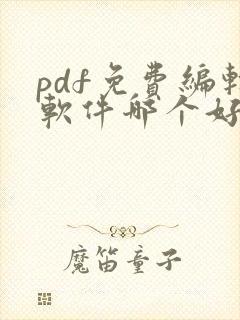 pdf免費編輯
軟件哪个好
魔笛童子